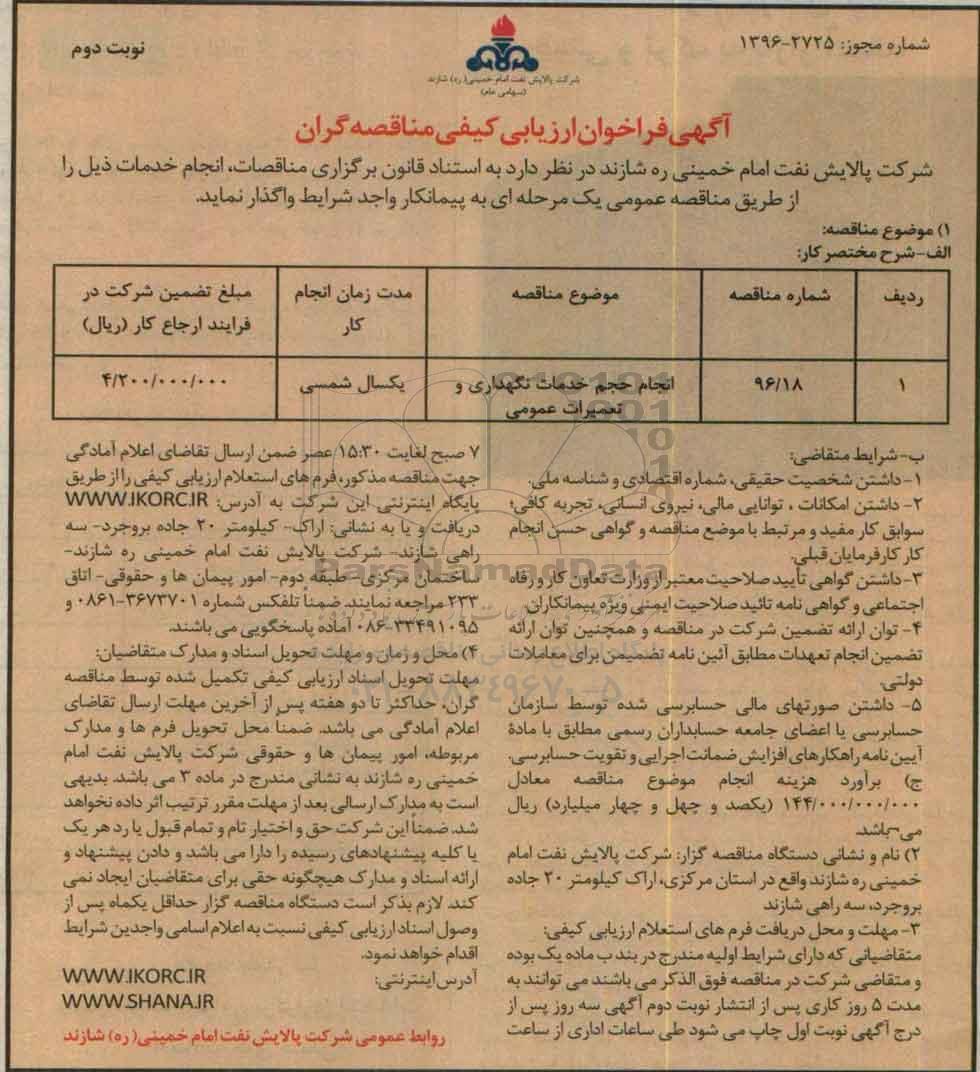 شماره مجوز: ۲۷۲۵-۱۳۹۶
نوبت دوم
شرکت پالایش نفت امام خمینی (ره) شازند
(سهامی عام)
آگهی فراخوان ارزیابی کیفی مناقصه گران
شرکت پالایش نفت امام خمینی ره شازند در نظر دارد به استناد قانون برگزاری مناقصات، انجام خدمات ذیل را
از طریق مناقصه عمومی یک مرحله ای به پیمانکار واجد شرایط واگذار نماید.
۱) موضوع مناقصه:
الف-شرح مختصر کار:
ردیف
شماره مناقصه
موضوع مناقصه
مدت زمان انجام
کار
مبلغ تضمین شرکت در
فرایند ارجاع کار (ریال)
۱
۹۶/۱۸
انجام حجم خدمات نگهداری و
تعمیرات عمومی
یکسال شمسی
۴/۲۰۰/۰۰۰/۰۰۰
ب-شرایط متقاضی:
۱- داشتن شخصیت حقیقی، شماره اقتصادی و شناسه ملی.
۲- داشتن امکانات ، توانایی مالی، نیروی انسانی، تجربه کافی؛
سوابق کار مفید و مرتبط با موضع مناقصه و گواهی حسن انجام
کار کارفرمایان قبلی.
۳-داشتن گواهی تأیید صلاحیت معتبر از وزارت تعاون کار و رفاه
اجتماعی و گواهی نامه تائید صلاحیت ایمنی ویژه پیمانکاران.
۴- توان ارائه تضمین شرکت در مناقصه و همچنین توان ارائه
تضمین انجام تعهدات مطابق آئین نامه تضیمن برای معاملات
دولتی.
۵- داشتن صورتهای مالی حسابرسی شده توسط سازمان
حسابرسی یا اعضای جامعه حسابداران رسمی مطابق با مادهٔ
آیین نامه راهکارهای افزایش ضمانت اجرایی و تقویت حسابرسی.
ج) برآورد هزینه انجام موضوع مناقصه معادل
۱۴۴/۰۰۰/۰۰۰/۰۰۰ (یکصد و چهل و چهار میلیارد) ریال
می-باشد.
۲) نام و نشانی دستگاه مناقصه گزار: شرکت پالایش نفت امام
خمینی ره شازند واقع در استان مرکزی، اراک کیلومتر ۲۰ جاده
بروجرد، سه راهی شازند
۳- مهلت و محل دریافت فرم های استعلام ارزیابی کیفی:
متقاضیانی که دارای شرایط اولیه مندرج در بند ب ماده یک بوده
و متقاضی شرکت در مناقصه فوق الذکر می باشند می توانند به
مدت ۵ روز کاری پس از انتشار نوبت دوم آگهی سه روز پس از
درج آگهی نوبت اول چاپ می شود طی ساعات اداری از ساعت
۷ صبح لغایت ۱۵:۳۰ عصر ضمن ارسال تقاضای اعلام آمادگی
جهت مناقصه مذکور، فرم های استعلام ارزیابی کیفی را از طریق
پایگاه اینترنتی این شرکت به آدرس: WWW.IKORC.IR
دریافت و یا به نشانی: اراک- کیلومتر ۲۰ جاده بروجرد- سه
راهی شازند- شرکت پالایش نفت امام خمینی ره شازند-
ساختمان مرکزی- طبقه دوم- امور پیمان ها و حقوقی- اتاق
۲۳۳ مراجعه نمایند. ضمناً تلفکس شماره ۳۶۷۳۷۰۱-۰۸۶۱ و
۰۸۶-۳۳۴۹۱۰۹۵ آماده پاسخگویی می باشند.
۴) محل و زمان و مهلت تحویل اسناد و مدارک متقاضیان:
مهلت تحویل اسناد ارزیابی کیفی تکمیل شده توسط مناقصه
گران، حداکثر تا دو هفته پس از آخرین مهلت ارسال تقاضای
اعلام آمادگی می باشد. ضمناً محل تحویل فرم ها و مدارک
مربوطه، امور پیمان ها و حقوقی شرکت پالایش نفت امام
خمینی ره شازند به نشانی مندرج در ماده ۳ می باشد. بدیهی
است به مدارک ارسالی بعد از مهلت مقرر ترتیب اثر داده نخواهد
شد. ضمناً این شرکت حق و اختیار تام و تمام قبول یا رد هر یک
یا کلیه پیشنهادهای رسیده را دارا می باشد و دادن پیشنهاد و
ارائه اسناد و مدارک هیچگونه حقی برای متقاضیان ایجاد نمی
کند. لازم بذکر است دستگاه مناقصه گزار حداقل یکماه پس از
وصول اسناد ارزیابی کیفی نسبت به اعلام اسامی واجدین شرایط
اقدام خواهد نمود.
آدرس اینترنتی: WWW.IKORC.IR
WWW.SHANA.IR
روابط عمومی شرکت پالایش نفت امام خمینی( ره) شازند
ParsNamadData
۰۲۱-۸۸۳۴۹۶۷۰-۵